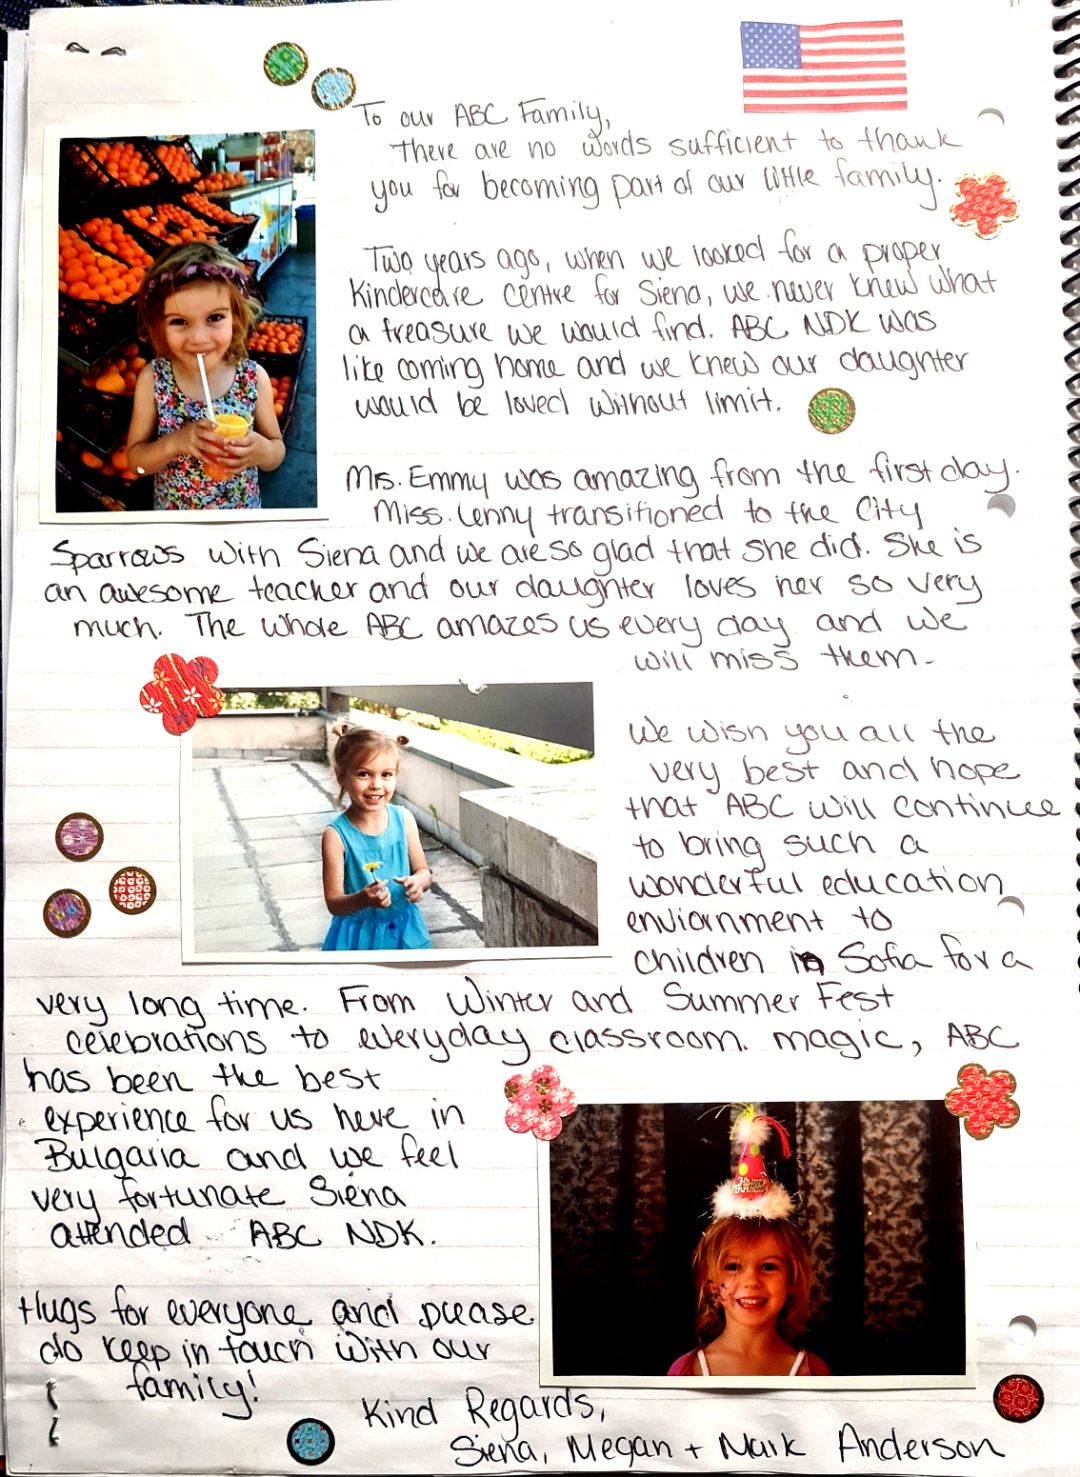 To our ABC Family,
there are no words sufficient to thank
you for becoming part of our little family.
Two years ago, when we looked for a proper
Kindercare centre for Siena, we never knew what
a treasure we would find. ABC NDK was
like coming home and we knew our daughter
would be loved without limit.
Ms. Emmy was amazing from the first day.
Miss. Lenny transitioned to the City
Sparrows with Siena and we are so glad that she did. She is
an awesome teacher and our daughter loves her so very
much. The whole ABC amazes us every day and we
will miss them.
We wish you all the
very best and hope
that ABC will continue
to bring such a
wonderful education
enviornment to
children in Sofia for a
very long time. From Winter and Summer Fest
celebrations to everyday classroom magic, ABC
has been the best
experience for us here in
Bulgaria and we feel
very fortunate Siena
attended ABC NDK.
Hugs for everyone and please
do keep in touch with our
family!
Kind Regards,
Siena, Megan + Mark Anderson